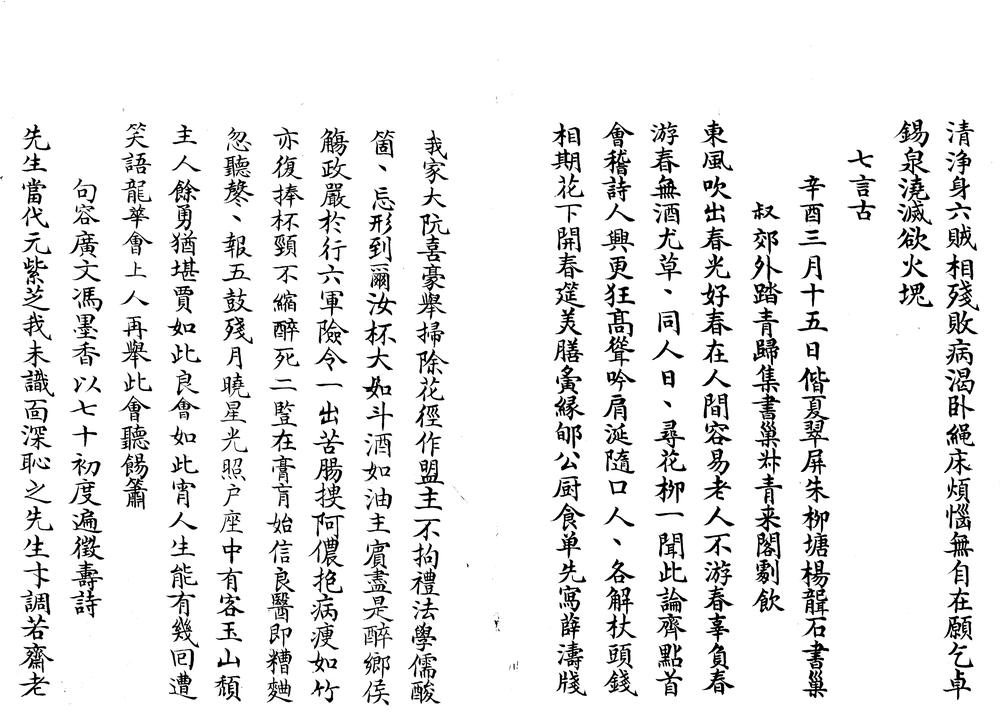 清淨身六賊相殘敗病渴卧繩床煩惱無自在願乞卓
錫泉澆滅欲火塊
七言古
辛酉三月十五日偕夏翠屏朱柳塘楊聾石書巢
叔郊外踏青歸集書巢叔青来閣劇飲
東風吹出春光好春在人間容易老人不游春辜負春
游春無酒尤草、同人日、尋花柳一聞此論齊點首
會稽詩人興更狂高聳吟肩涎隨口人、各解杖頭錢
相期花下開春筵美膳夤緣郇公厨食单先寫薛濤牋
我家大阮喜豪舉掃除花徑作盟主不拘禮法學儒酸
箇、忘形到爾汝杯大如斗酒如油主賓盡是醉鄉侯
觴政嚴於行六軍險令一出苦腸摟阿儂抱病瘦如竹
亦復捧杯頸不縮醉死二豎在膏肓始信良醫即糟麯
忽聽鼕、報五鼓殘月曉星光照户座中有客玉山頹
主人餘勇猶堪賈如此良會如此宵人生能有幾回遭
笑語龍華會上人再舉此會聽餳簫
句容廣文馮墨香以七十初度遍徵壽詩
先生當代元紫芝我未識面深恥之先生卞調若齋老